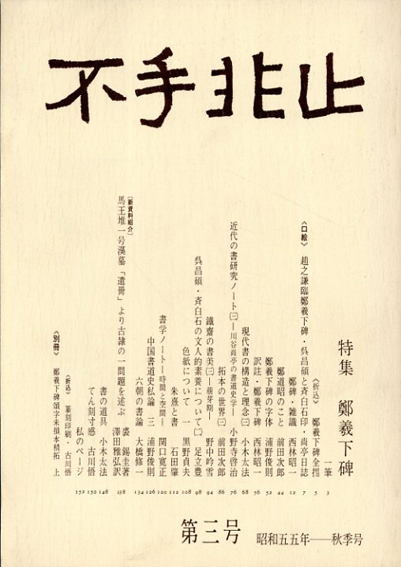 不手非止
特集 鄭羲下碑
一筆
〈折込〉 鄭羲下碑全搨 3
〈口絵〉 趙之謙臨鄭羲下碑・呉昌碩と斉白石印・尚亭日誌 5
鄭碑・雑識 西林昭一 7
鄭道昭のこと 前田次郎 12
鄭羲下碑の字体 浦野俊則 44
訳註・鄭羲下碑 西林昭一 52
現代書の構造と理念(二) 56
近代の書研究ノート(三)―川谷尚亭の書道史学― 小野寺啓治 68
拓本の世界(三) 前田次郎 76
鐵齋の書美(三)―萌芽期― 野中吟雪 86
呉昌碩・斉白石の文人的素養について(二) 足立豊 94
色紙について 一 黒野貞夫 98
朱熹と書 石田肇 108
書学ノート―時間と空間― 関口寛正 112
中国書道史私論 三 浦野俊則 120
六朝の書論 大橋修一 126
〔新資料紹介〕
馬王堆一号漢墓「遣冊」より古隷の一問題を述ぶ 裘錫圭著 澤田雅弘訳 134
書の道具 小木太法 148
てん刻寸感 古川悟 150
私のページ 152
〈折込〉 篆刻印刷・古川悟
〈別冊〉 鄭羲下碑頌字未損本精拓 上
第三号
昭和五五年――秋季号